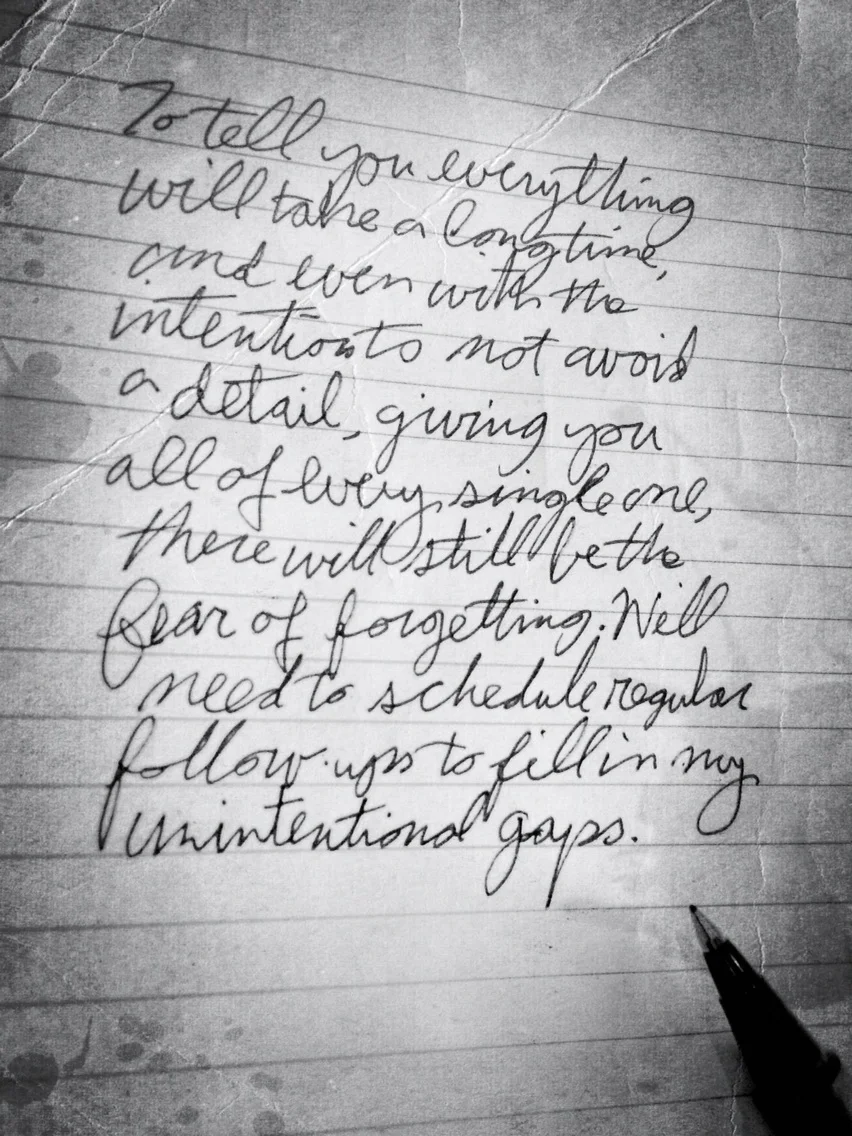 To tell you everything
will take a long time,
and even with the
intentions to not avoid
a detail, giving you
all of every single one,
there will still be the
fear of forgetting. We'll
need to schedule regular
follow-ups to fill in my
unintentional gaps.